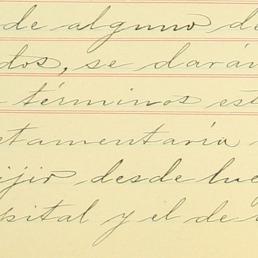 de alguno de
dos, se darán
términos est
stamentaría
ijir desde lue
pital y el de